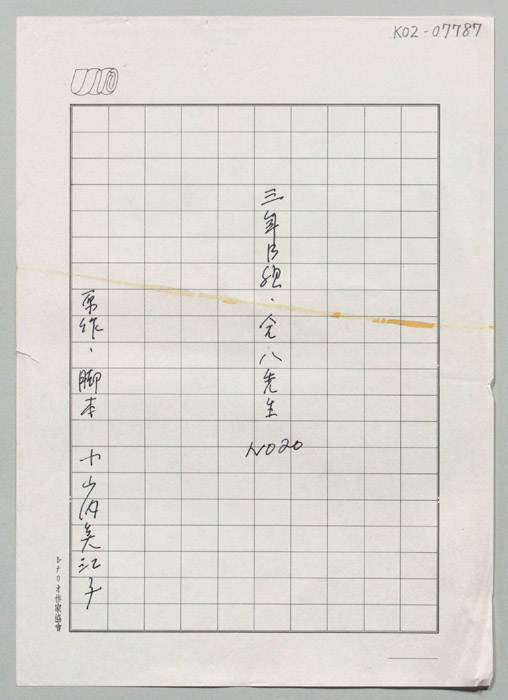 K02-07787
三年B組・金八先生 NO20
原作・脚本 小山内美江子
シナリオ作家協會